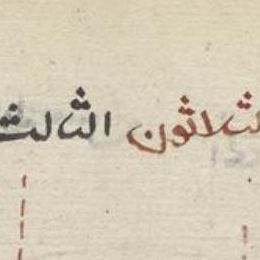 لثلاثون الثالث